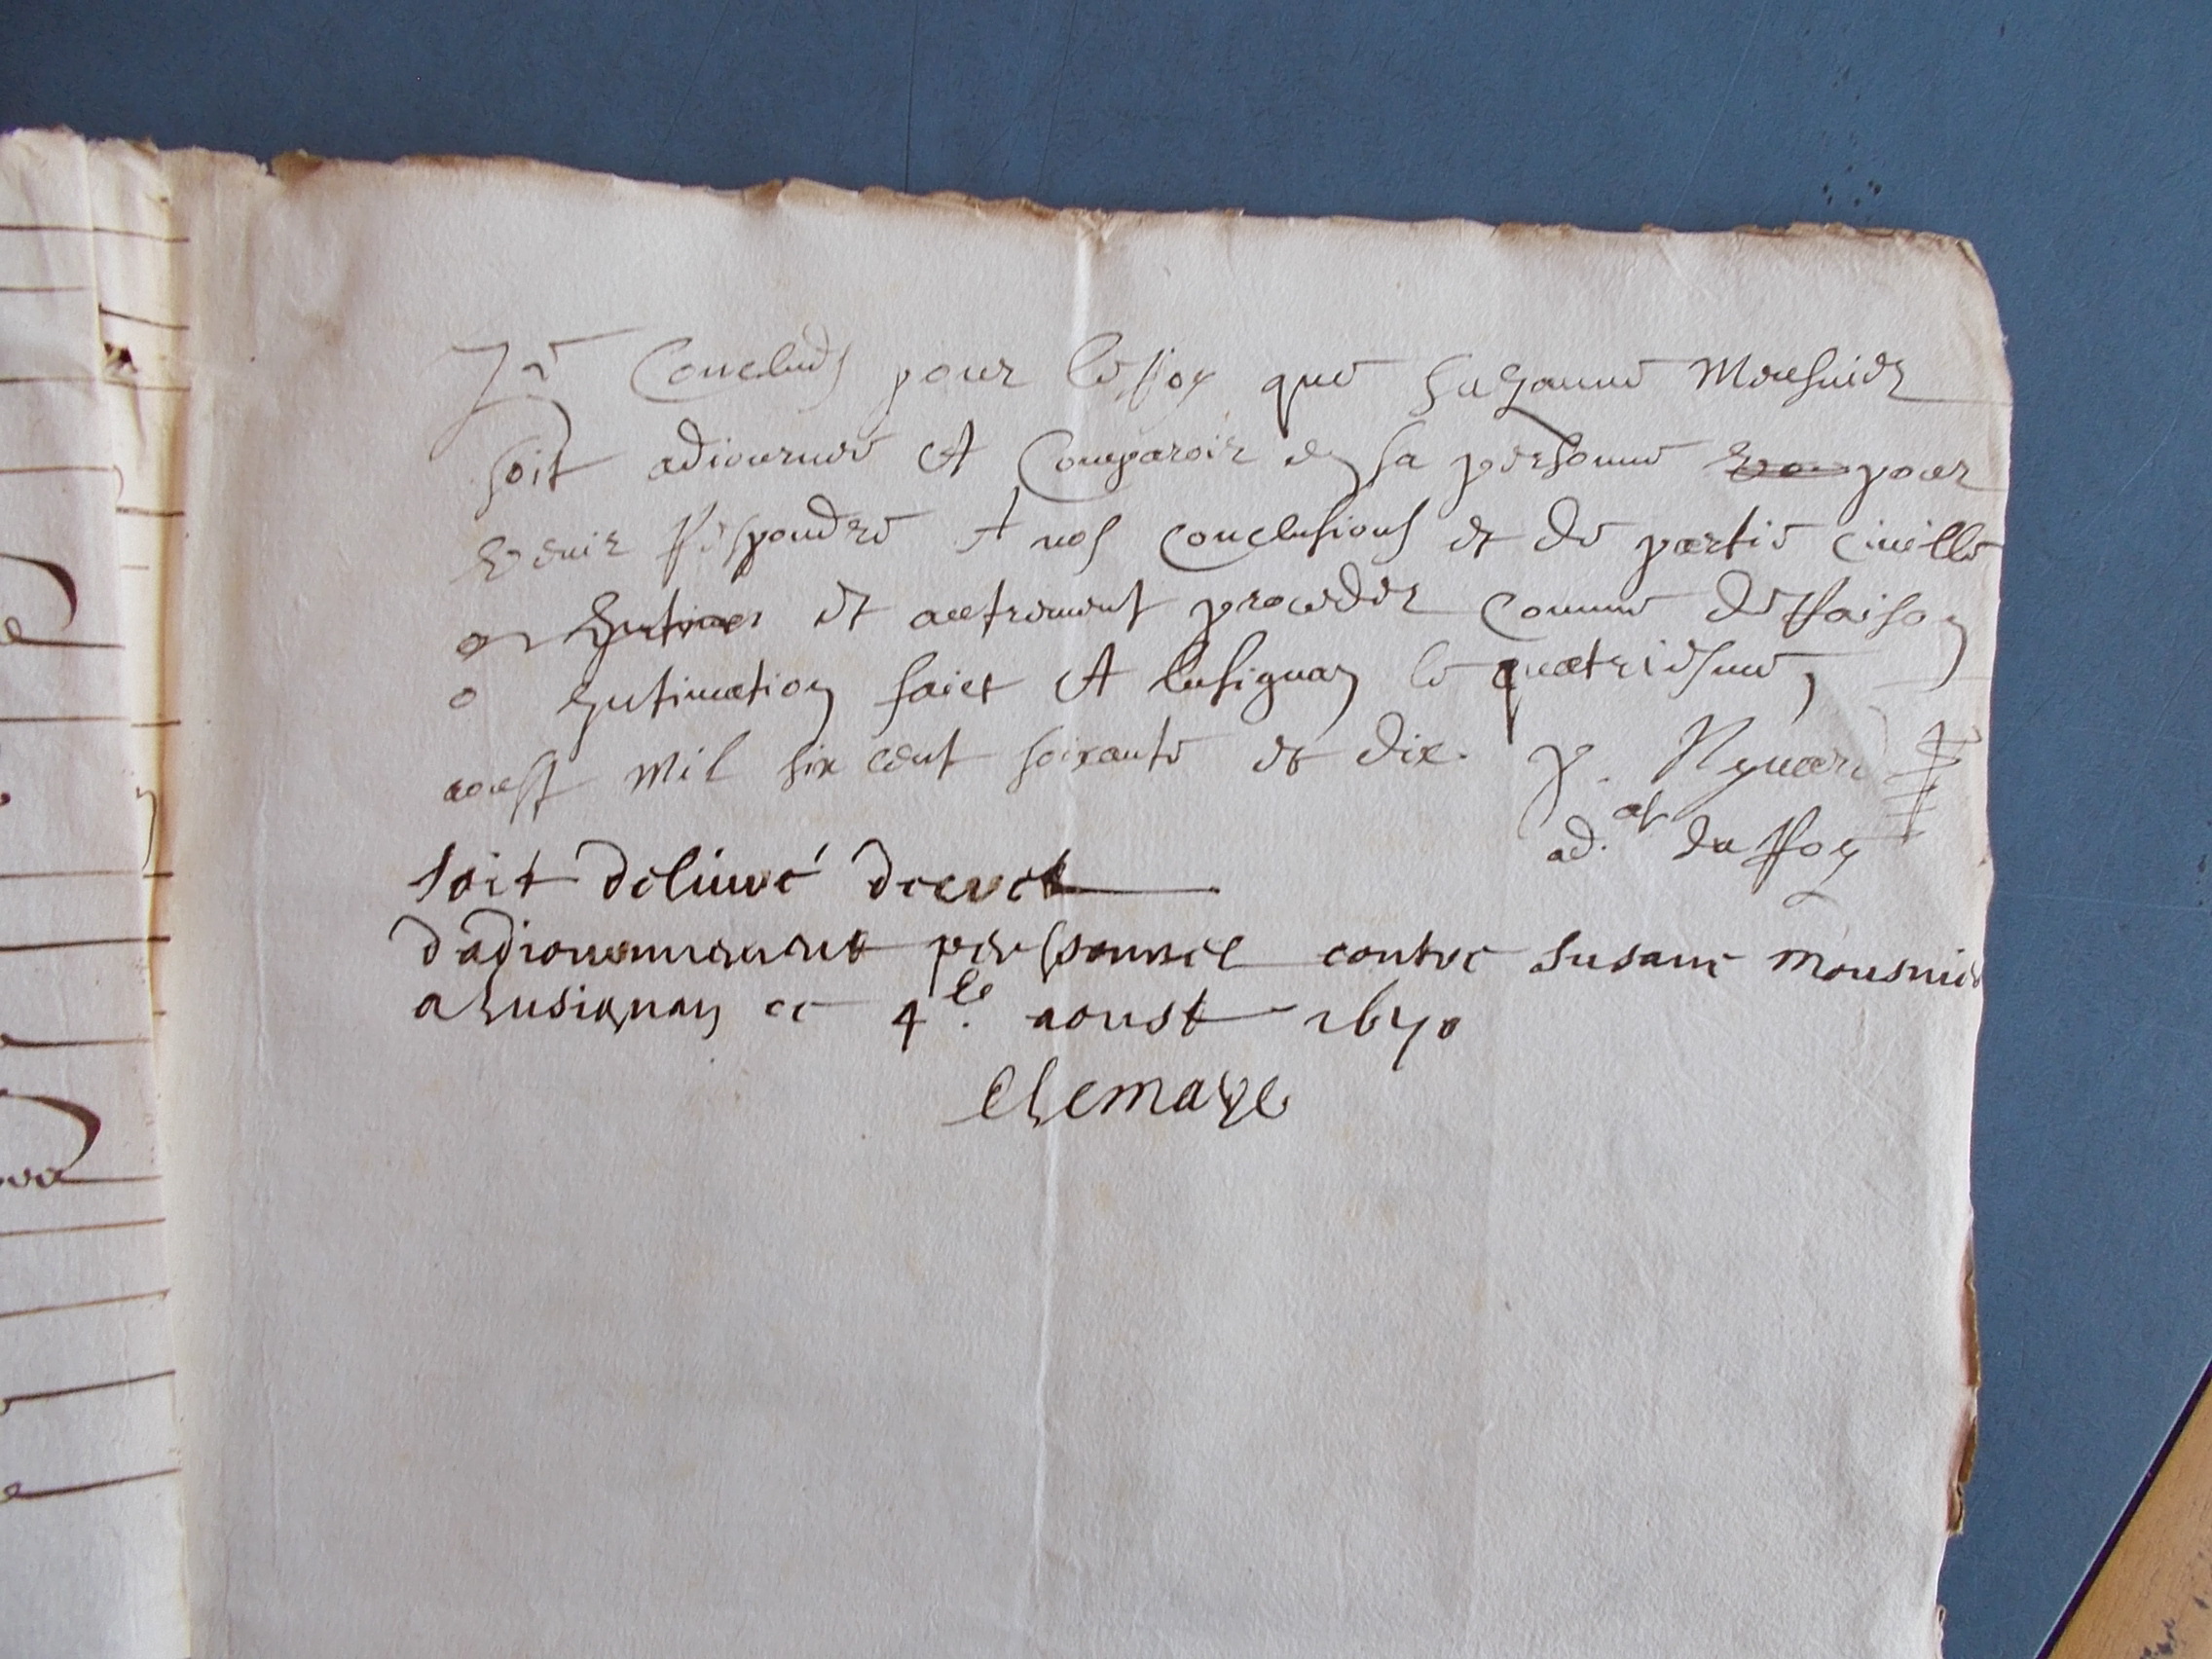 Je Concluds pour le Roy que Suzanne Mousnier
soit adiournee A Comparoir en sa personne pour
venir Respondre A nos conclusions et de partie civille
et autrement proceder comme de Raison
o Intimation faict A Lusignan le quatriesme
aoust mil six cent soixante et dix. P.
ad.at du Roy
soit deliuré decret
d'adiournement personnel contre Susane Mousnier
a Lusignan ce 4.le aoust 1670
Chemaye